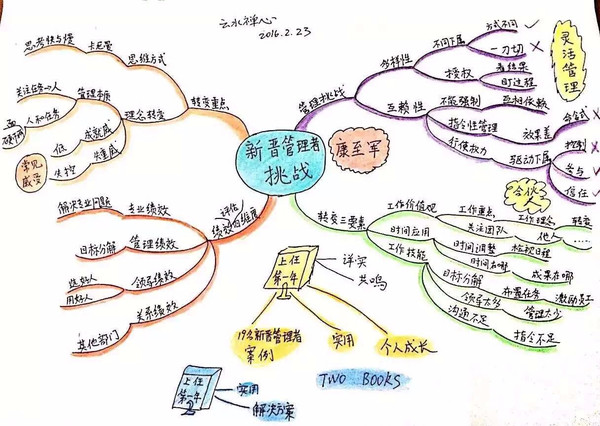 云水禅心
2016.2.23
新晋管理者
挑战
康至军
转变重点
思维方式
卡尼曼
思考快与慢
理念转变
管理本质
关注任务→人
人和任务
低
成就感
失控
焦虑感
常见
感受
评估
绩效四维度
专业绩效
解决专业问题
管理绩效
目标分解
领导绩效
选好人
用好人
关系绩效
其他部门
管理挑战
多样性
不同下属
方式不同 ✓
一刀切 ×
授权
看结果
盯过程
灵活管理
互赖性
不能强制
互相依赖
指令性管理
效果差
命令式 ×
行使权力
驱动下属
控制 ×
参与 ✓
信任 ✓
转变三要素
工作价值观
工作重点
工作理念
转变
关注团队
他人
……
时间应用
时间调整
检视日程
时间有哪
成果在哪
工作技能
目标分解
布置任务
激励员工
领导太多
管理太少
沟通不足
指令不足
上任
第一年
详实
共鸣
19名新晋管理者
案例
实用
个人成长
TWO BOOKS
上任
第一年
实用
解决方案